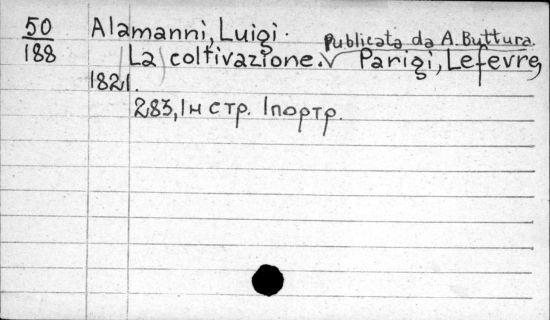 50 Alamanni, Luigi.
188 La coltivazione. Publicata da A. Buttura. Parigi, Lefevre,
1821.
283, 1н стр. 1портр.